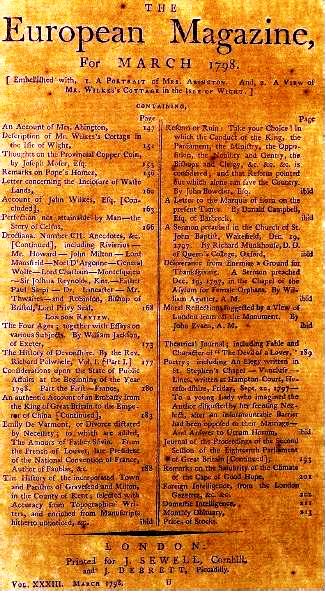 THE
European Magazine,
For MARCH 1798.
[ Embellished with, 1. A PORTRAIT of MRS. ABINGTON. And, 2. A VIEW of
MR. WILKES's COTTAGE in the ISLE of WIGHT. ]
CONTAINING,
Page
An Account of Mrs. Abington, 147
Description of Mr. Wilkes's Cottage in
the Isle of Wight, 151
Thoughts on the Provincial Copper Coin,
by Joseph Moser, Esq. 153
Remarks on Pope's Homer, 156
Letter concerning the Inclosure of Waste
Lands, 160
Account of John Wilkes, Esq. [Con-
cluded], 163
Perfection not attainable by Man—the
Story of Celsus, 166
Drossiana. Number CII. Anecdotes, &c.
[Continued], including Riverius—
Mr. Howard—John Milton—Lord
Mansfield—Noel D'Argonne—General
Wolfe—Lord Chatham—Montesquieu
—Sir Joshua Reynolds, Knt.—Father
Paul Sarpi—Dr. Lancaster—Mr.
Thwaites—and Robinson, Bishop of
Bristol, Lord Privy Seal, 168
LONDON REVIEW.
The Four Ages; together with Essays on
various Subjects. By William Jackson,
of Exeter, 173
The History of Devonshire. By the Rev.
Richard Polwhele, Vol. I. [Part I.] 177
Considerations upon the State of Public
Affairs at the Beginning of the Year
1798. Part the First—France, 180
An authentic Account of an Embassy from
the King of Great Britain to the Empe-
ror of China [Continued], 183
Emily De Varmont, or Divorce dictated
by Necessity; to which are added,
The Amours of Father Sévin. From
the French of Louvet, late President
of the National Convention of France,
Author of Faublas, &c. 188
The History of the incorporated Town
and Parishes of Gravesend and Milton,
in the County of Kent; selected with
Accuracy from Topographical Wri-
ters, and enriched from Manuscripts
hitherto unnoticed, &c. ibid
Page
Reform or Ruin: Take your Choice! in
which the Conduct of the King, the
Parliament, the Ministry, the Oppo-
sition, the Nobility and Gentry, the
Bishops and Clergy, &c. &c. &c. is
considered; and that Reform pointed
out which alone can save the Country.
By John Bowdler, Esq. ibid
A Letter to the Marquis of Lorn on the
present Times. By Donald Campbell,
Esq. of Barbreck, ibid
A Sermon preached in the Church of St.
John Baptist, Wakefield, Dec. 19,
1797. By Richard Munkhouse, D. D.
of Queen's College, Oxford, ibid
Deliverance from Enemies a Ground for
Thanksgiving. A Sermon preached
Dec. 19, 1797, in the Chapel of the
Asylum for Female Orphans. By Wil-
liam Agutter, A. M. ibid
Moral Reflections suggested by a View of
London from off the Monument. By
John Evans, A. M. ibid
Theatrical Journal; including Fable and
Character of "The Devil of a Lover," 189
Poetry; including An Elegy written in
St. Stephen's Chapel—
Lines, written at Hampton Court, He-
refordshire, Friday, Sept. 22, 1797—
To a young Lady who imagined the
Author
after an insurmountable Barrier
had been opposed to their Marriage—
And Answer to Urban Hermit, ibid
Journal of the Proceedings of the Second
Session of the Eighteenth Parliament
of Great Britain [Continued], 193
Remarks on the Salubrity of the Climate
of the Cape of Good Hope, 201
Foreign Intelligence, from the London
Gazettes, &c. &c. 202
Domestic Intelligence,
Monthly Obituary, 203
Prices of Stocks.
LONDON:
Printed for J. SEWELL, Cornhill,
and J. DEBRETT, Piccadilly.
VOL. XXXIII. MARCH 1798. U